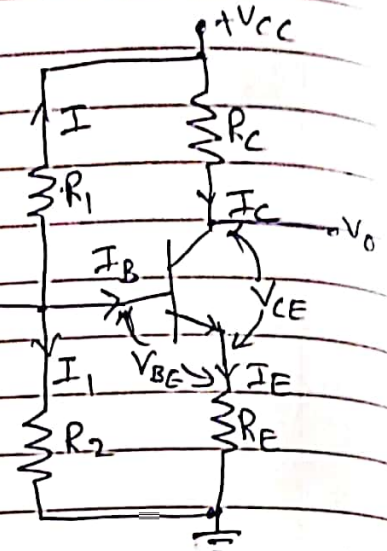 +VCC
I
RC
R1
IC
V0
IB
VCE
I1
VBE
IE
R2
RE